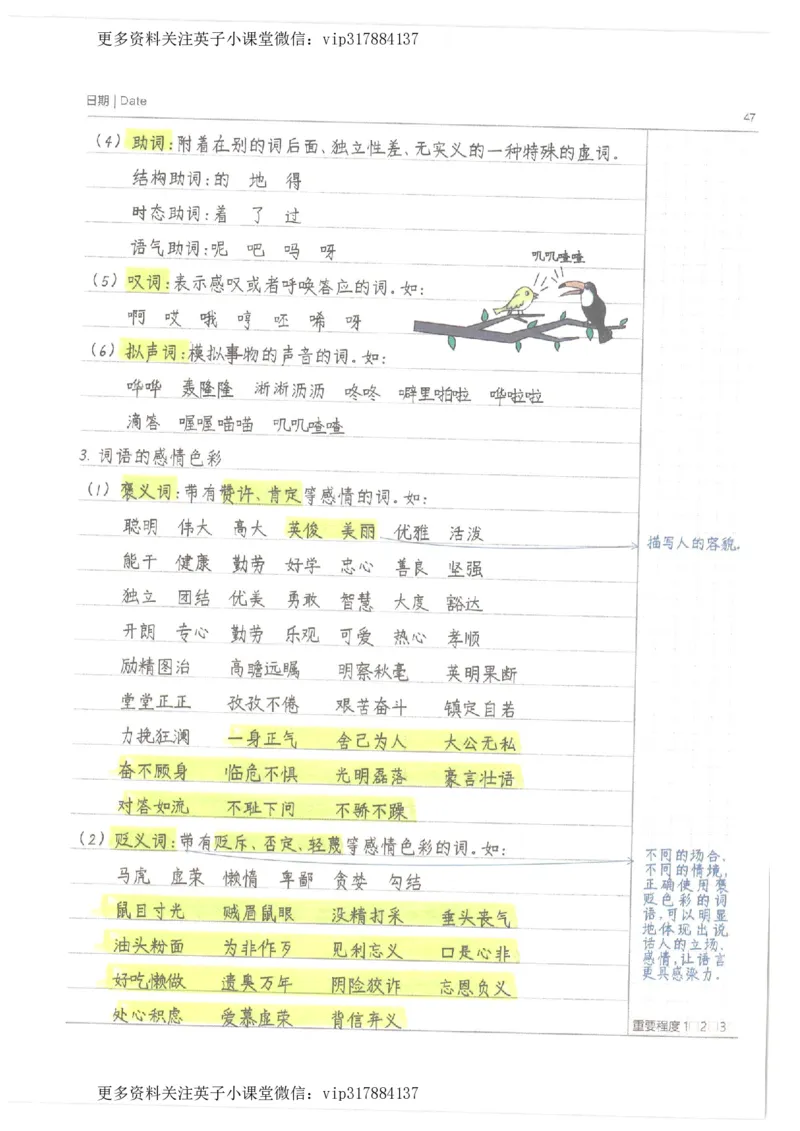 更多资料关注英子小课堂微信：vip317884137
日期 | Date
47
(4) 助词：附着在别的词后面、独立性差、无实义的一种特殊的虚词．
结构助词：的 地 得
时态助词：着 了 过
语气助词：呢 吧 吗 呀
叽叽喳喳
(5) 叹词：表示感叹或者呼唤答应的词．如：
啊 哎 哦 哼 呸 唏 呀
(6) 拟声词：模拟事物的声音的词．如：
哗哗 轰隆隆 淅淅沥沥 咚咚 噼里啪啦 哗啦啦
滴答 喔喔喵喵 叽叽喳喳
3. 词语的感情色彩
(1) 褒义词：带有赞许、肯定等感情的词．如：
聪明 伟大 高大 英俊 美丽 优雅 活泼
描写人的容貌．
能干 健康 勤劳 好学 忠心 善良 坚强
独立 团结 优美 勇敢 智慧 大度 豁达
开朗 专心 勤劳 乐观 可爱 热心 孝顺
励精图治 高瞻远瞩 明察秋毫 英明果断
堂堂正正 孜孜不倦 艰苦奋斗 镇定自若
力挽狂澜 一身正气 舍己为人 大公无私
奋不顾身 临危不惧 光明磊落 豪言壮语
对答如流 不耻下问 不骄不躁
(2) 贬义词：带有贬斥、否定、轻蔑等感情色彩的词．如：
马虎 虚荣 懒惰 卑鄙 贪婪 勾结
鼠目寸光 贼眉鼠眼 没精打采 垂头丧气
油头粉面 为非作歹 见利忘义 口是心非
好吃懒做 遗臭万年 阴险狡诈 忘恩负义
处心积虑 爱慕虚荣 背信弃义
不同的场合、
不同的情境，
正确使用褒
贬色彩的词
语，可以明显
地体现出说
话人的立场、
感情，让语言
更具感染力．
重要程度 1 2 3
更多资料关注英子小课堂微信：vip317884137